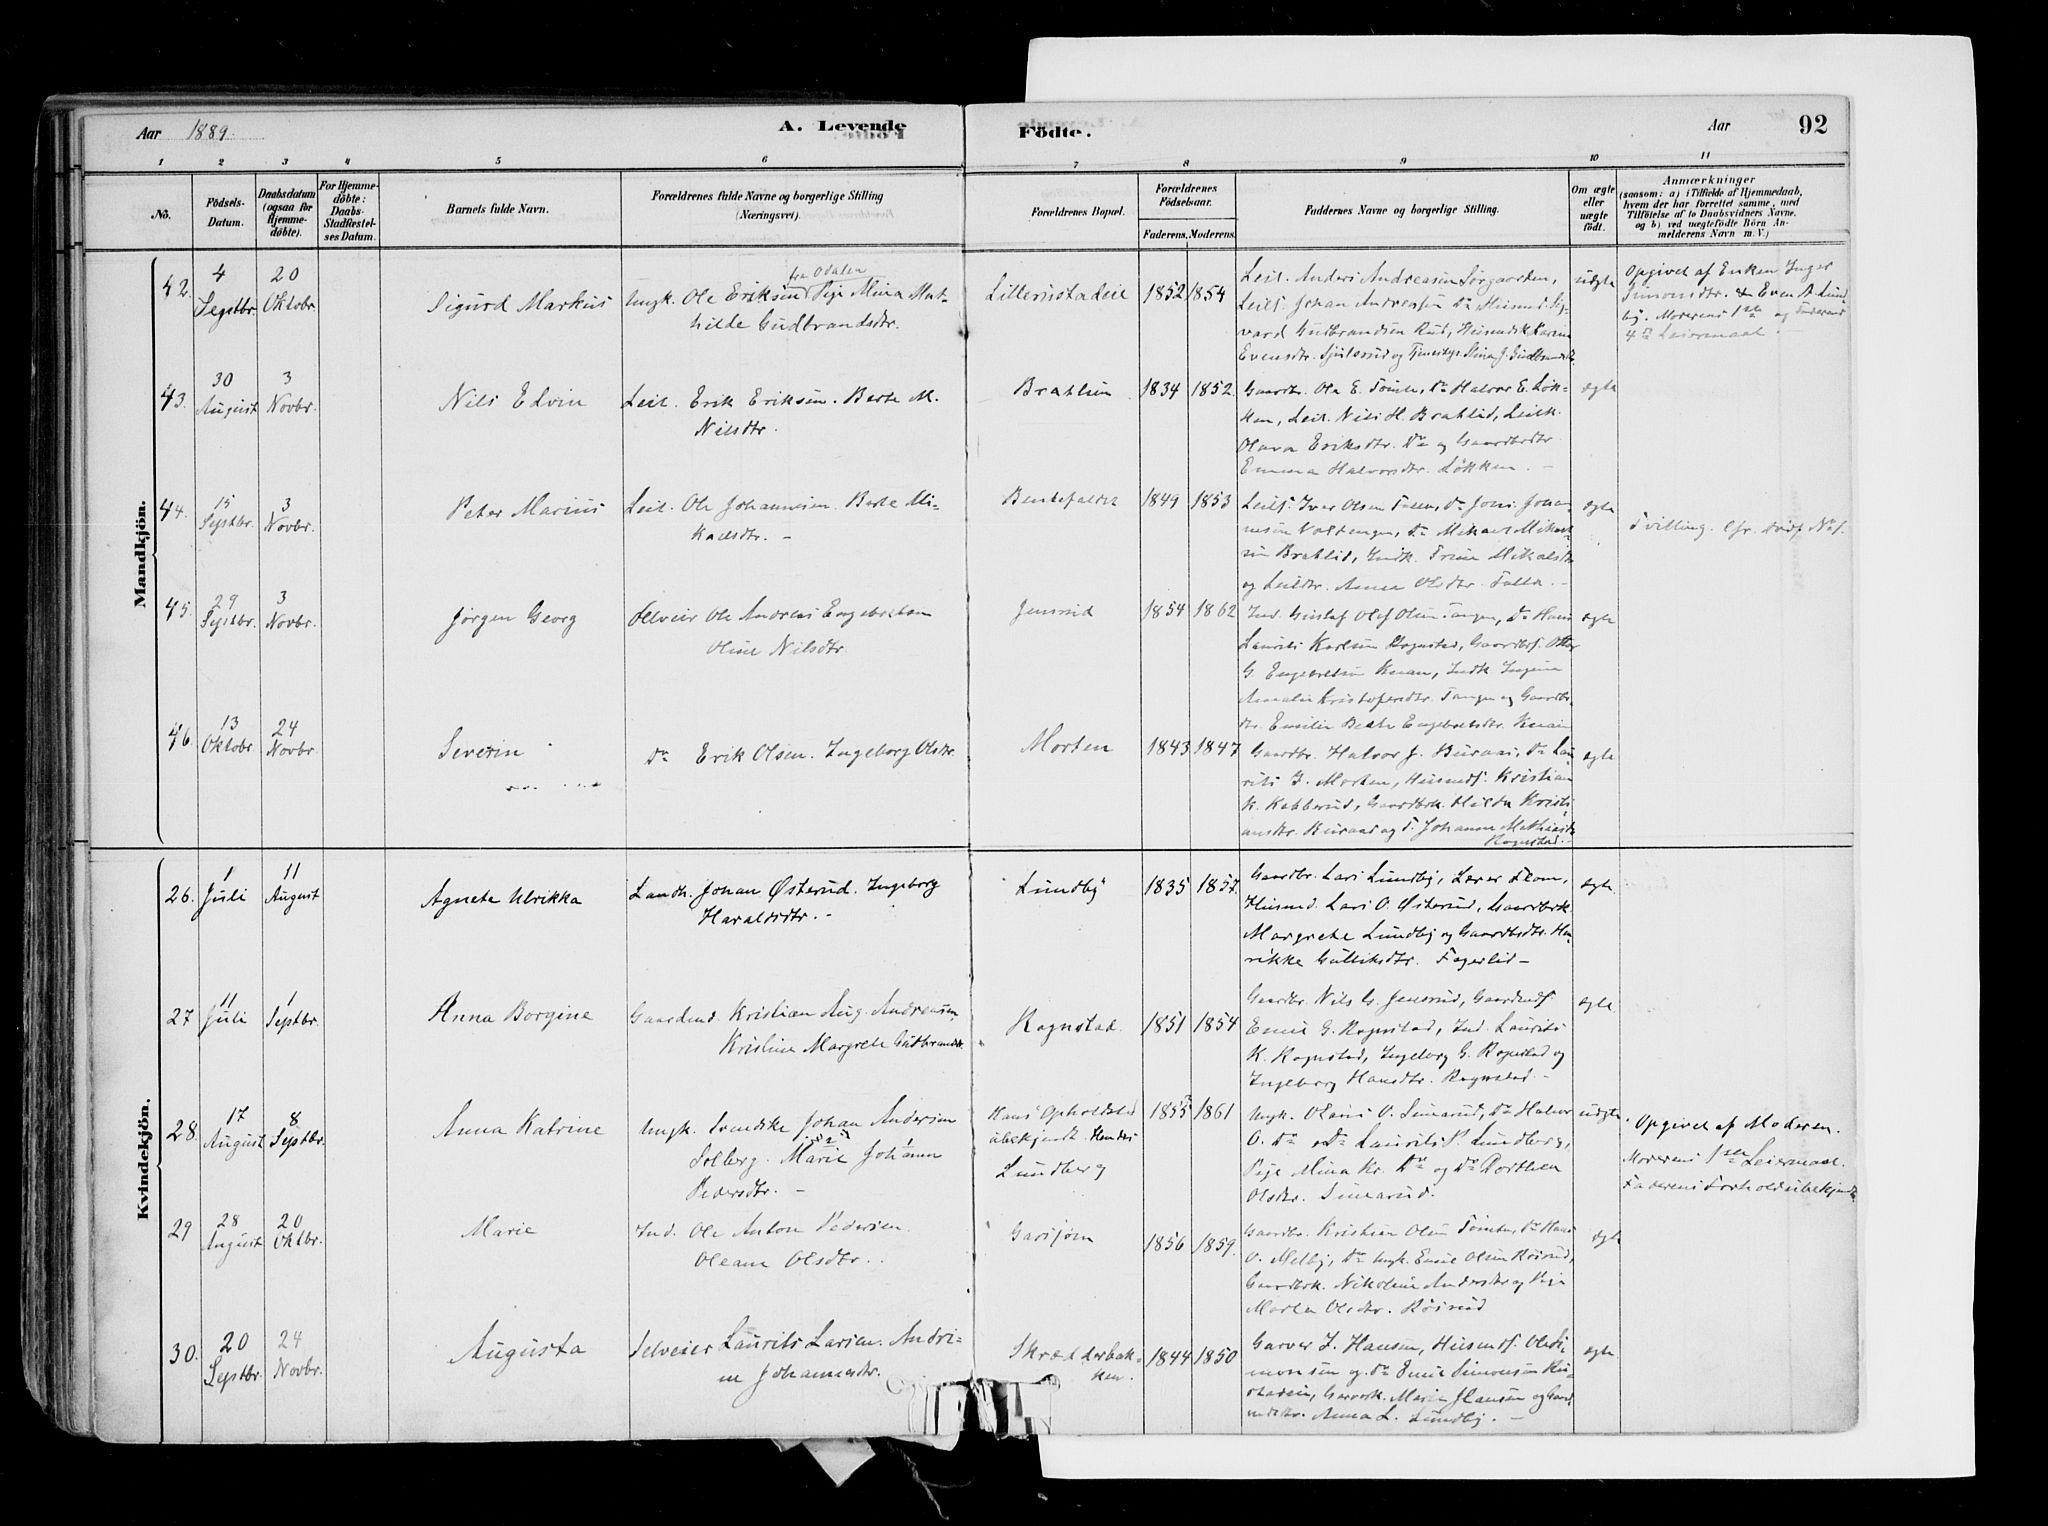 Aar 1889. A. Levende Födte. Aar 92
1 2 3 4 5 6 7 8 9 10 11
No. Födsels-Datum. Daabsdatum (ogsaa för Hjemme-döbte). For Hjemme-döbte: Daabs-Stadfæstel-ses Datum. Barnets fulde Navn. Forældrenes fulde Navne og borgerlige Stilling (Næringsvei). Forældrenes Bopæl. Forældrenes Födselsaar. Faderens. Moderens. Faddernes Navne og borgerlige Stilling. Om ægte eller uægte födt. Anmærkninger (saasom: a) i Tilfælde af Hjemmedaab, hvem der har forrettet samme, med Tilföielse af to Daabsvidners Navne, og b) ved uægtefödte Börn An-melderens Navn m. V.)
Mandkjön.
42. 4 Septbr. 20 Oktobr. Sigurd Markus
Ungk. Ole Eriksen fra Odalen Pige Mina Mat-
hilde Gudbrandsdtr.
Lillerustadeie 1852 1854
Leil. Anders Andreasen Sørgaarden,
Leilf. Johan Andreassen Do Husmd Sig-
vard Gudbrandsen Rud, Husmdsk Karen
Evensdtr.
uægte
Opgivet af Enken Inger
Simonsdtr. & Even A. Lund-
by. Moderens 1ste og Faderens
4de Leiermaal
43. 30 August 3 Novbr. Nils Edvin
Leil. Erik Eriksen. Berte M.
Nilsdtr.
Brahlien 1834 1852
Gaardbr. Ole E. Tømte, Do Halvor E. Løk-
ken, Leil. Nils H. Brahlid, Leilk.
Olava Eriksdtr. Do og Gaardbrdtr.
Emma Halvorsdtr. Løkken. -
ægte
44. 15 Septbr. 3 Novbr. Peter Marius
Leil. Ole Johannesen. Berte Mi-
kaelsdtr. -
Bentefaldet 1849 1853
Leilf. Iver Olsen Falla, Do Jons Johan-
nesen Do Mikael Mikael-
sen Brahlid, Indk. Trine Mikalsdtr
og Leildtr. Anna Olsdtr. Falla. -
ægte
Tvilling. Cfr.
45. 29 Septbr. 3 Novbr. Jørgen Georg
Selveier Ole Andreas Engebretsen
Oline Nilsdtr.
Jensrud 1854 1862
Ind. Gustaf Olaf Olsen Tangen, Do Hans
Laurits Karlsen Rognstad, Gaardbrf. Otto
G. Engebretsen Knain, Indk Ingine
Amalie Kristofersdtr. Tangen og Gaardbr.
dtr. Emilie Beate Engebretsdtr. Knain
ægte
46. 13 Oktobr. 24 Novbr. Severin
Do Erik Olsen. Ingeborg Olsdtr.
Morten 1843 1847
Gaardbr. Halvor J. Buraas, Do Lau-
rits I. Morten, Husmdf. Kristian
K. Kebberud, Gaardbrk. Hilda Kristi-
ansdtr. Buraas og F. Johanne Mathiasdtr
Rognstad. -
ægte
Kvindekjön.
26. 1 Juli 11 August Agnete Ulrikka
Landh. Johan Østerud. Ingeborg
Haraldsdtr. -
Lundby 1835 1857.
Gaardbr. Lars Lundby, Lærer Flom,
Husmd. Lars O. Østerud, Gaardbrk.
Margrete Lundby og Gaardbrdtr. Hen-
rikke Gulliksdtr. Fagerlid -
ægte
27 11 Juli 1 Septbr. Anna Borgine
Gaardmd. Kristian Aug. Andreasen
Kristine Margrete Gudbrandsdtr.
Rognstad. 1851 1854
Gaardbr. Nils G. Jensrud, Gaardmdf.
Emil G. Rognstad, Ind. Laurits
K. Rognstad, Ingeborg G. Rognstad og
Ingeborg Hansdtr. Rognstad. -
ægte
28. 17 August 8 Septbr. Anna Katrine
Ungk. Svenske Johan Andersen
Solberg. Marie Johanne
Pedersdtr. -
Hans Opholdsted
ubekjendt. Hendes
Lundberg
1855 1861
Ungk. Olaus O. Simarud, Do Halvor
O. Do Do Laurits P. Lundberg,
Pige Mina Kr. Do og Do Dorthea
Olsdtr. Simarud.
uægte
Opgivet af Moderen.
Moderens 1ste Leiermaal.
Faderens Forhold ubekjendt
29 28 August 20 Oktbr. Marie
Ind. Ole Anton Pedersen.
Oleane Olsdtr. .
Garsjøen 1856 1859.
Gaardbr. Kristian Olsen Tømte, Do Hans
O. Melby, Do Ungk. Emil Olsen Røisrud,
Gaardbrk. Nikoline Andersdtr og Pige
Marte Olsdtr. Røisrud
ægte
30. 20 Septbr. 24 Novbr. Augusta
Selveier Laurits Larsen. Andri-
ne Johannesdtr.
Skrædderbak-
ken.
1844 1850
Garver J. Hansen, Husmdf. Ole Si-
monsen og Do Emil Simonsen
Garverk. Maria Hansen og
Anna L. Lundby. -
ægte